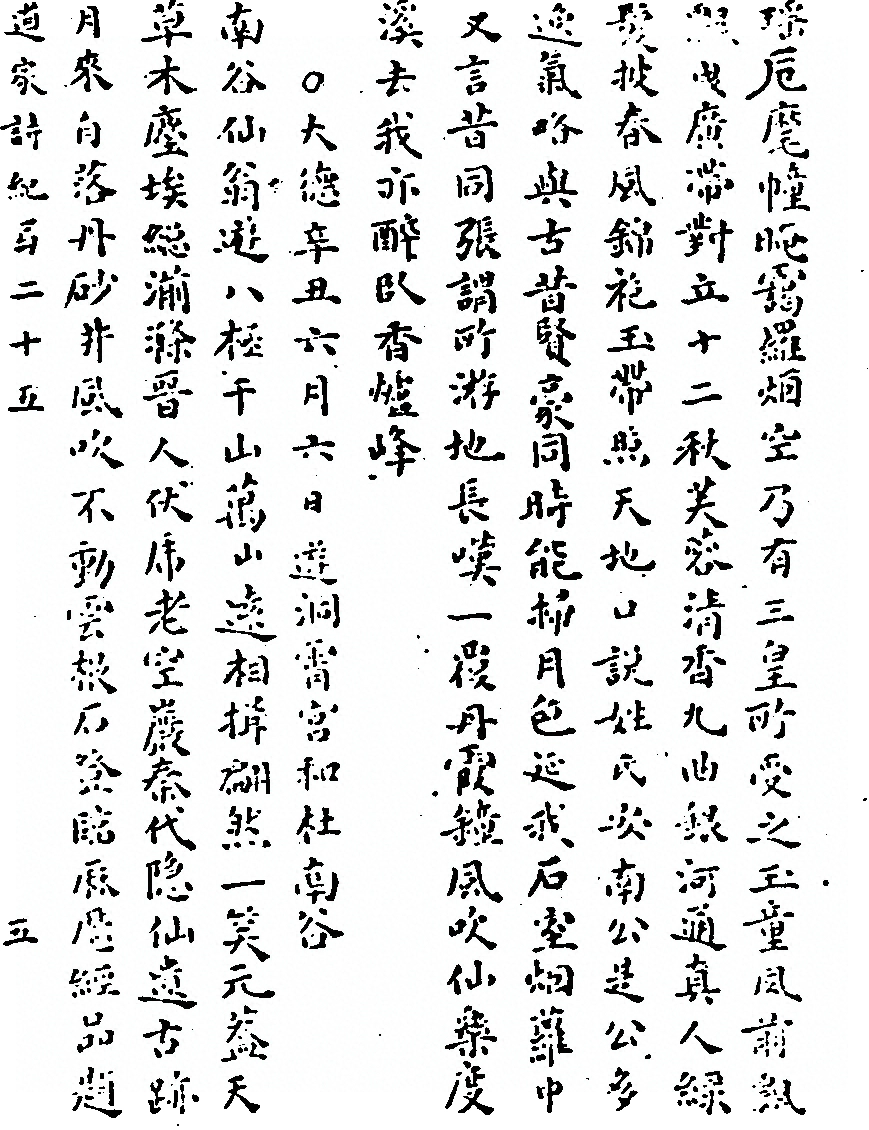 瑤卮麾幢晻靄羅烟空乃有三皇所受之玉童風前飄
飄曳廣帶對立十二秋芙蓉清香九曲銀河通真人綠
髮披春風錦袍玉帶照天地口說姓氏吹南公是公多
逸氣略與古昔賢豪同時能掃月色延我石室烟蘿中
又言昔同張謂所游地長嘆一復丹霞鐘風吹仙樂度
溪去我亦醉臥香爐峰
○大德辛丑六月六日遊洞霄宮和杜南谷
南谷仙翁遊八極千山萬山遠相揖翩然一笑元蓋天
草木塵埃總湔滌晉人伏虎老空巖秦代隐仙遺古跡
月來自落丹砂井風吹不動雲根石登臨歷歷經品題
道家詩紀百二十五 五